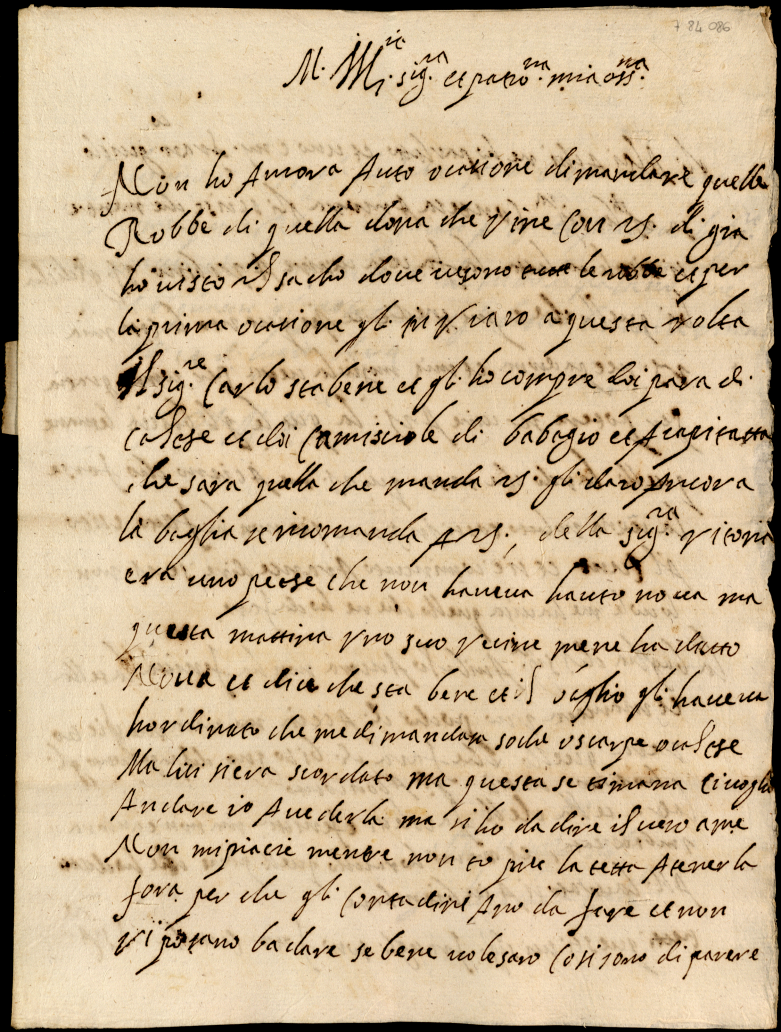 7 84 086
M. Ill.re sig.ra et patro.na mia oss.ma
Non ho Ancora Auto ocasione di mandare quelle
Robbe di quella dona che vine Con VS. di gia
ho visto il sacho dove ve sono tutte le robbe et per
la prima ocasione gli inviaro a questa volta
Il sig.re Carlo sta bene et gli ho compre doi para di
calsse et doi Camisciole di babagio et
che sara quella che manda VS. gli daro Ancora
la baglia se ricomanda A VS., della sig.ra vitoria
era uno pesse che non haveva hauto nova ma
questa mattina uno suo vecine mene ha datto
Nova et dice che sta bene et il gli haveva
hordinato che me dimandasa soche o scarpe o calsse
Ma lui siera scordato ma questa setimana ci voglo
Andare io A vederla ma si ho da dire il vero a me
Non mi piacie mentre non to piu la tetta A tenerla
fora per che gli Contadini Ano da fare et non
vi posano badare se bene volesaro Cosi sono di parere